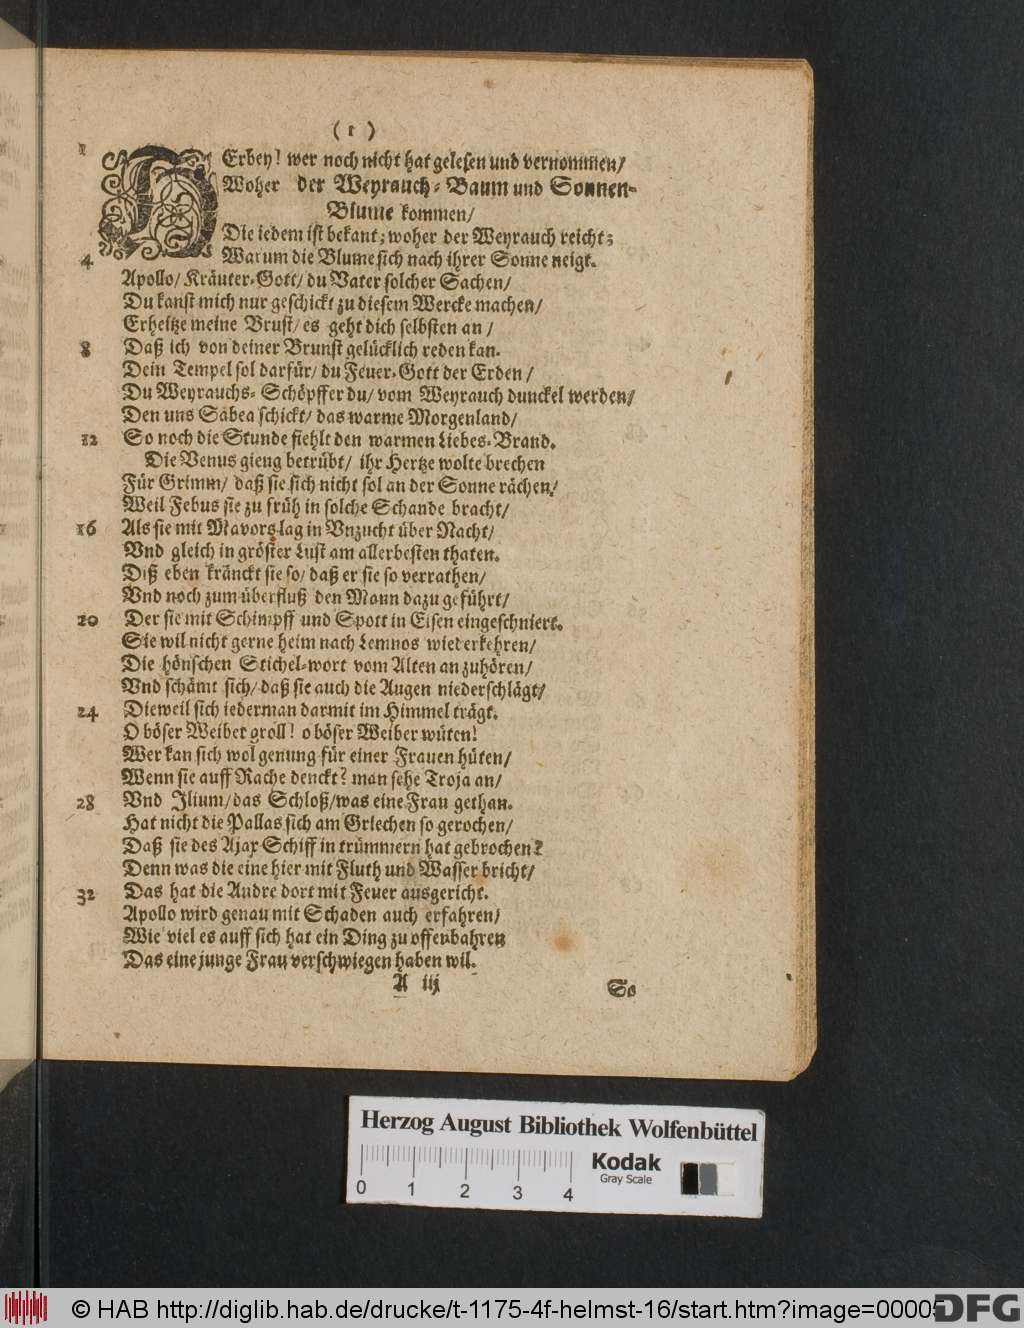 ( 1 )
1 HErbey! wer noch nicht hat gelesen und vernommen/
Woher der Weyrauch-Baum und Sonnen-
Blume kommen/
Die iedem ist bekant; woher der Weyrauch reicht;
4 Warum die Blume sich nach ihrer Sonne neigt.
Apollo/ Kräuter-Gott/ du Vater solcher Sachen/
Du kanst mich nur geschickt zu diesem Wercke machen/
Erheitze meine Brust/ es geht dich selbsten an/
8 Daß ich von deiner Brunst gelücklich reden kan.
Dein Tempel sol darfür/ du Feuer-Gott der Erden/
Du Weyrauchs-Schöpffer du/ vom Weyrauch dunckel werden/
Den uns Sabea schickt/ das warme Morgenland/
12 So noch die Stunde fiehlt den warmen Liebes-Brand.
Die Venus gieng betrübt/ ihr Hertze wolte brechen
Für Grimm/ daß sie sich nicht sol an der Sonne rächen/
Weil Febus sie zu früh in solche Schande bracht/
16 Als sie mit Mavors lag in Vnzucht über Nacht/
Vnd gleich in gröster Lust am allerbesten thaten.
Diß eben kränckt sie so/ daß er sie so verrathen/
Vnd noch zum überfluß den Mann dazu geführt/
20 Der sie mit Schimpff und Spott in Eisen eingeschniert.
Sie wil nicht gerne heim nach Lemnos wiederkehren/
Die hönschen Stichel-wort vom Alten anzuhören/
Vnd schämt sich/ daß sie auch die Augen niederschlägt/
24 Dieweil sich iederman darmit im Himmel trägt.
O böser Weiber groll! o böser Weiber wüten!
Wer kan sich wol genung für einer Frauen hüten/
Wenn sie auff Rache denckt? man sehe Troja an/
28 Vnd Ilium/ das Schloß/ was eine Frau gethan.
Hat nicht die Pallas sich am Griechen so gerochen/
Daß sie des Ajax Schiff in trümmern hat gebrochen?
Denn was die eine hier mit Fluth und Wasser bricht/
32 Das hat die Andre dort mit Feuer ausgericht.
Apollo wird genau mit Schaden auch erfahren/
Wie viel es auff sich hat ein Ding zu offenbahren
Das eine junge Frau verschwiegen haben wil.
A iij So
Herzog August Bibliothek Wolfenbüttel
Kodak
Gray Scale
0 1 2 3 4
© HAB http://diglib.hab.de/drucke/t-1175-4f-helmst-16/start.htm?image=00005
DFG